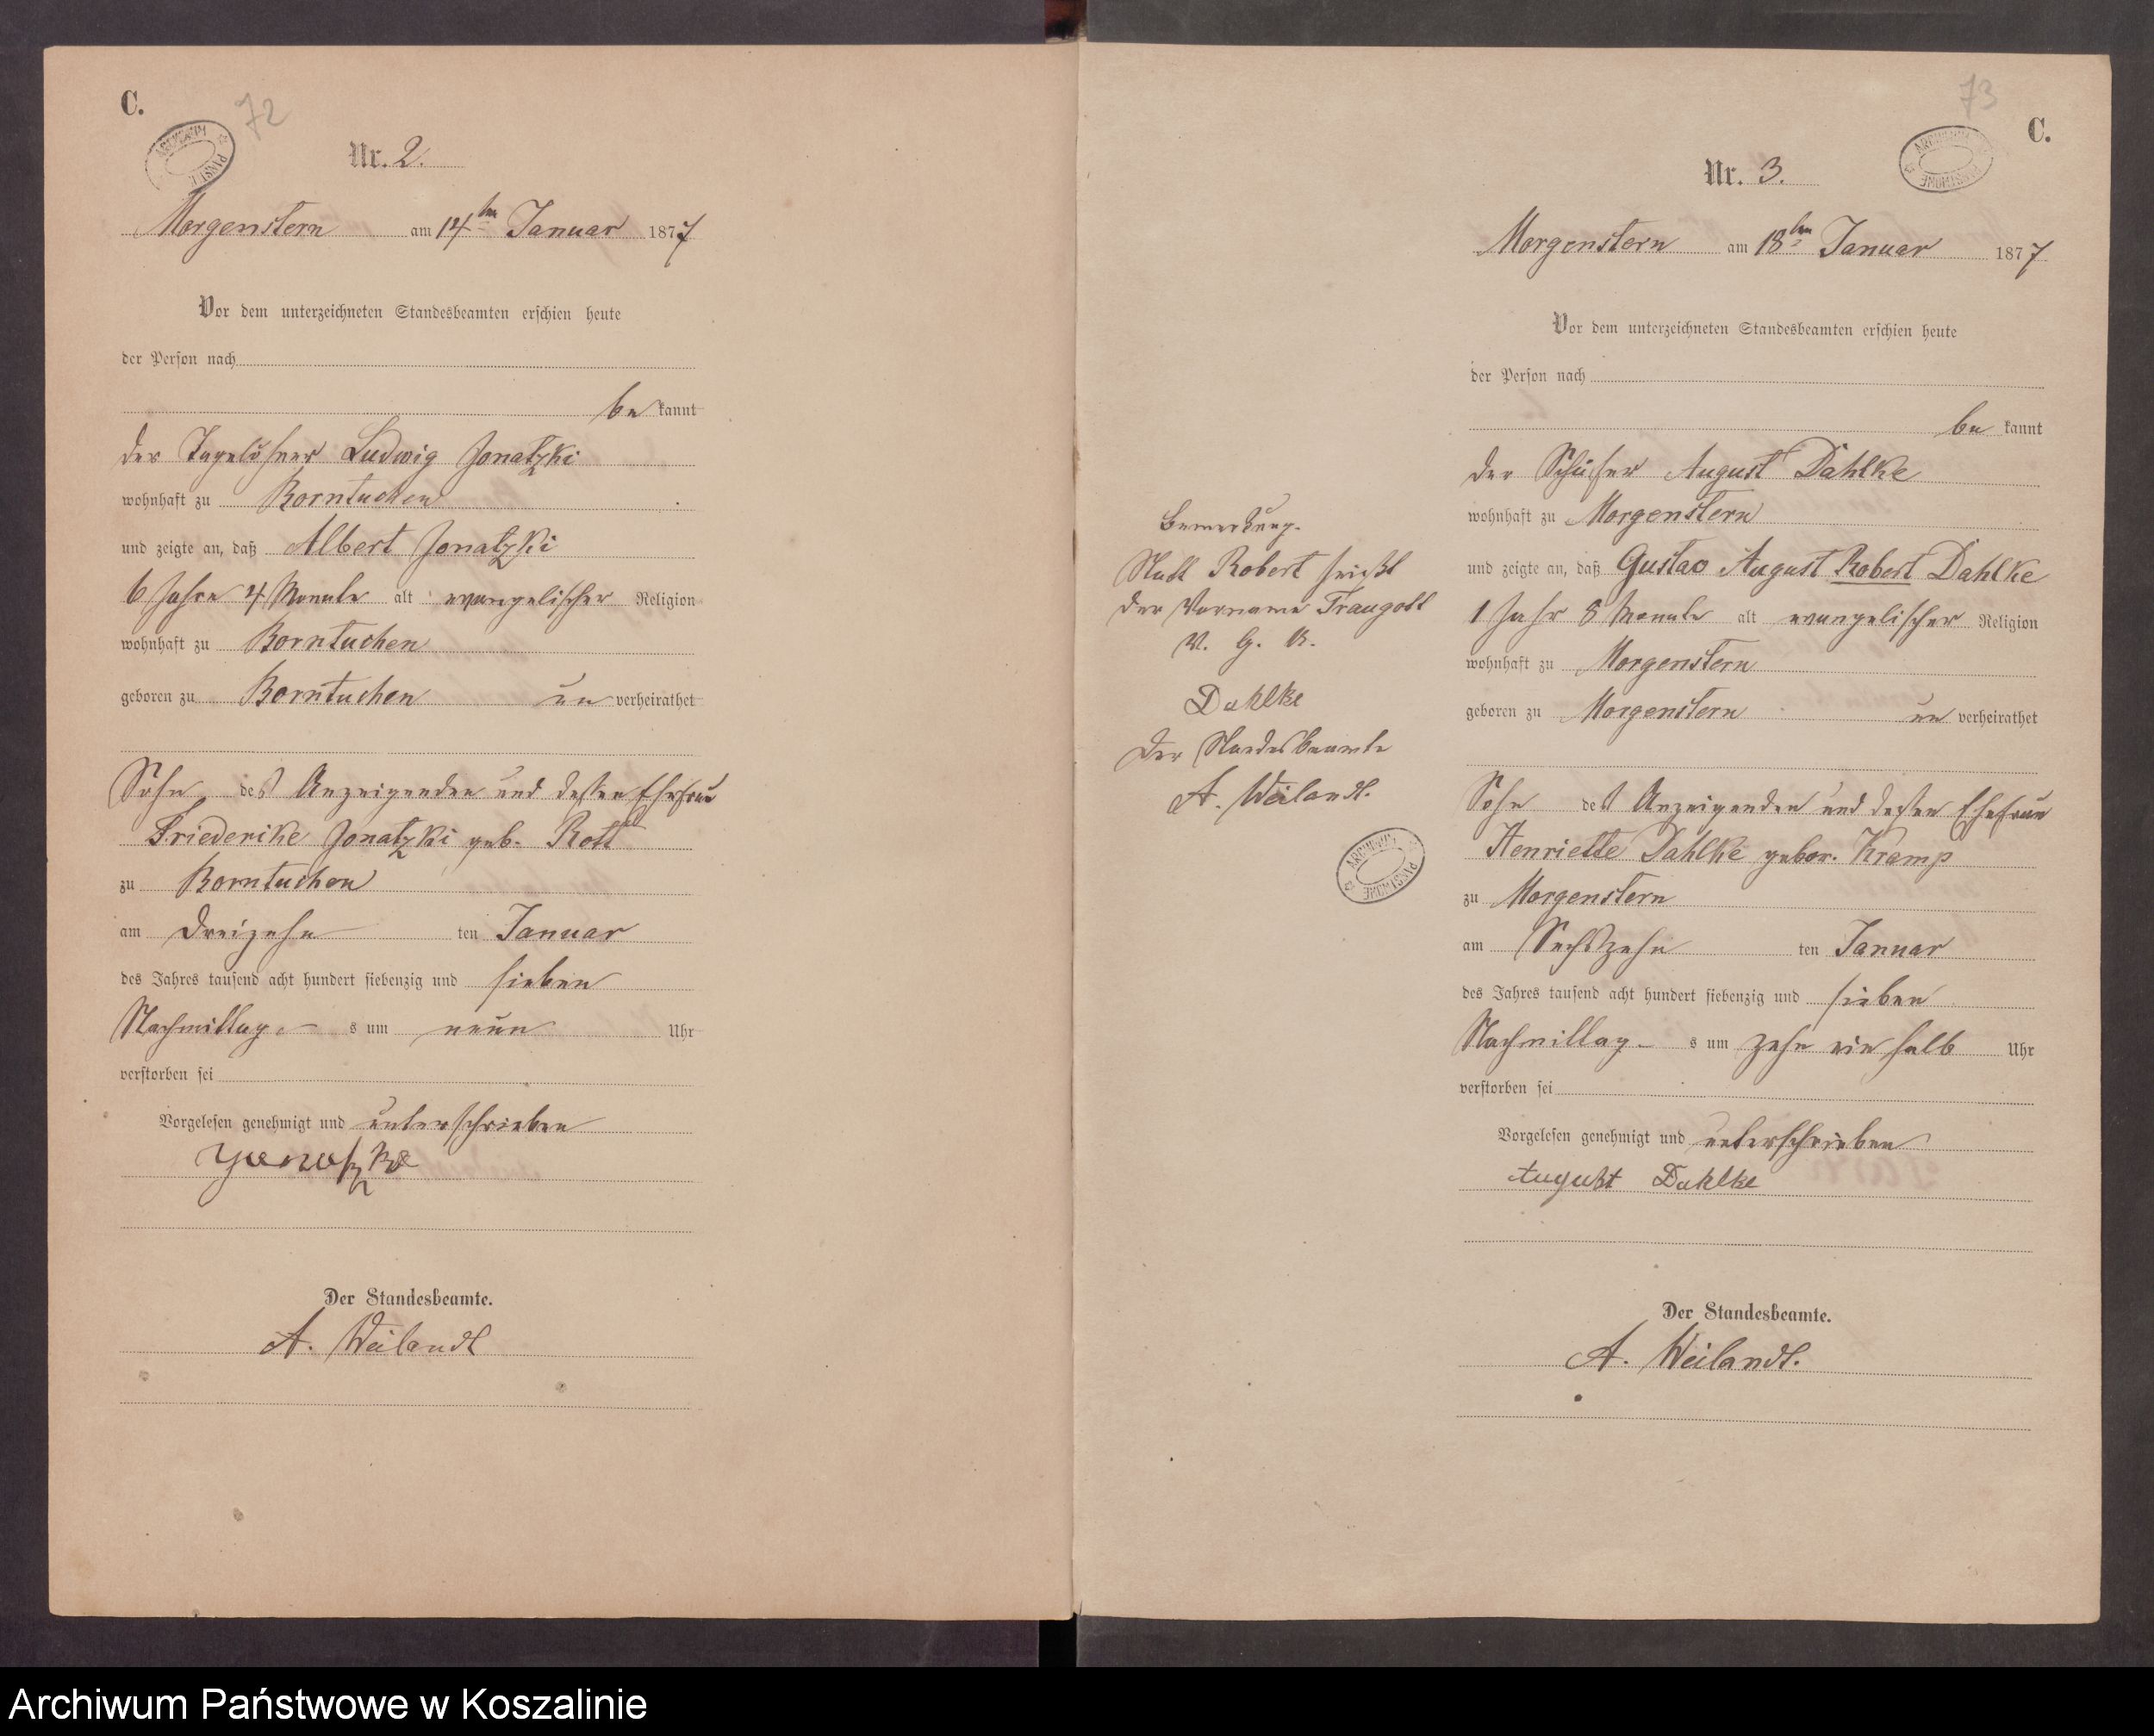 C.
72
Nr. 2.
Morgenstern am 14ten Januar 1877
Vor dem unterzeichneten Standesbeamten erschien heute
der Person nach
be kannt
der Tagelöhner Ludwig Jonatzki
wohnhaft zu Borntuchen
und zeigte an, daß Albert Jonatzki
6 Jahre 4 Monate alt evangelischer Religion
wohnhaft zu Borntuchen
geboren zu Borntuchen un verheirathet
Sohn des Anzeigenden und dessen Ehefrau
Friederike Jonatzki geb. Rott
zu Borntuchen
am dreizehn ten Januar
des Jahres tausend acht hundert siebenzig und sieben
Nachmittag s um neun Uhr
verstorben sei
Vorgelesen genehmigt und unterschrieben
Der Standesbeamte.
A. Weilandt
73
C.
Nr. 3.
Morgenstern am 18ten Januar 1877
Vor dem unterzeichneten Standesbeamten erschien heute
der Person nach
be kannt
der Schäfer August Dahlke
wohnhaft zu Morgenstern
und zeigte an, daß Gustav August Robert Dahlke
1 Jahr 8 Monate alt evangelischer Religion
wohnhaft zu Morgenstern
geboren zu Morgenstern un verheirathet
Sohn des Anzeigenden und dessen Ehefrau
Henriette Dahlke gebor. Kramp
zu Morgenstern
am Sechszehn ten Januar
des Jahres tausend acht hundert siebenzig und sieben
Nachmittag s um zehn ein halb Uhr
verstorben sei
Vorgelesen genehmigt und unterschrieben
August Dahlke
Der Standesbeamte.
A. Weilandt.
Bemerkung.
Statt Robert heißt
der Vorname Traugott
V. G. U.
Dahlke
Der Standesbeamte
A. Weilandt.
Archiwum Państwowe w Koszalinie